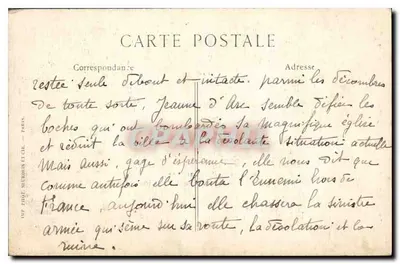 CARTE POSTALE
Correspondance
Adresse
restée seule debout et intacte parmi les décombres
de toute sorte, Jeanne d'Arc semble défier les
boches qui ont bombardés sa magnifique église
et réduit la ville à la situation actuelle
Mais aussi, gage d'espérance, elle nous dit que
comme autrefois elle bouta l'Ennemi hors de
France, aujourd'hui elle chassera la sinistre
armée qui sème sur sa route, la désolation et la
ruine.